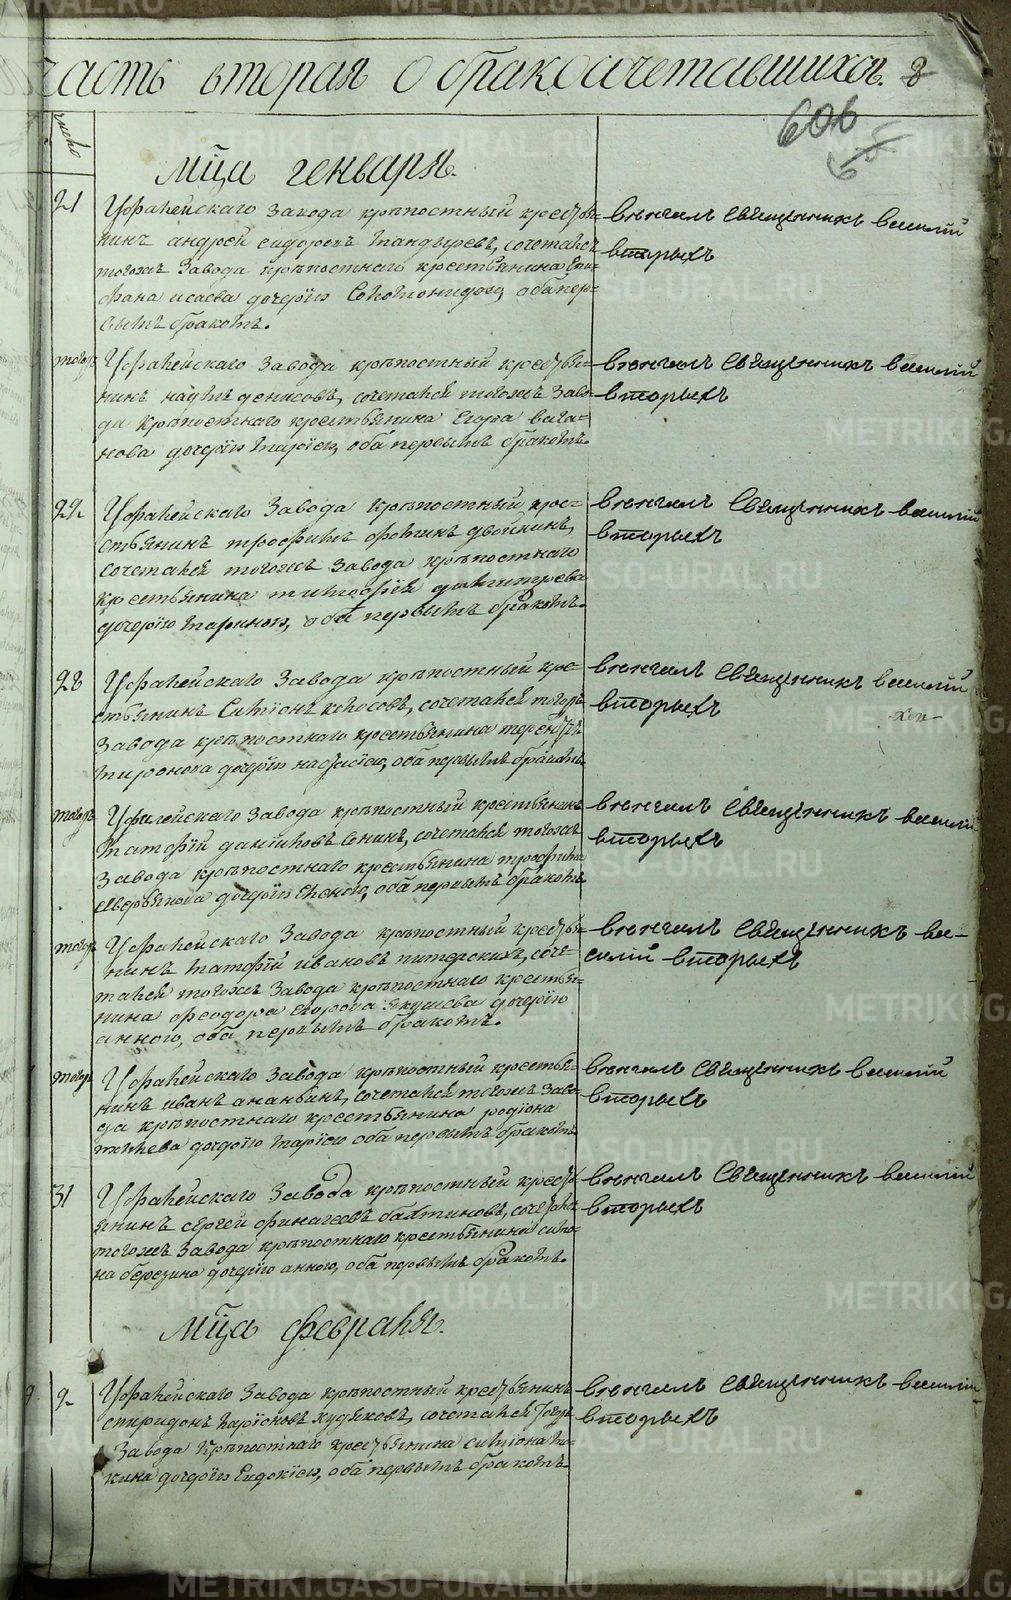 METRIKI.GASO-URAL.RU
часть вторая о бракосочетавшихся.
606
число
Мца генваря.
21
Уфалейскаго Завода крѣпостный крестья-
нинъ андрей сидоровъ сочетался
тогожъ Завода крѣпостнаго крестьянина Епи-
фана исаева дочерiю оба пер-
вымъ бракомъ.
вѣнчалъ Священникъ василiй
вторыхъ
тогожъ
Уфалейскаго Завода крѣпостный крестья-
нинъ наумъ денисовъ, сочетался тогожъ Заво-
да крѣпостнаго крестьянина Егора вага-
нова дочерiю марiею, оба первымъ бракомъ.
вѣнчалъ Священникъ василiй
вторыхъ
22
Уфалейскаго Завода крѣпостный крес-
стьянинъ трофимъ фокинъ двойкинъ,
сочетался тогожъ Завода крѣпостнаго
крестьянина тимофѣя
дочерiю мариною, оба первымъ бракомъ.
вѣнчалъ Священникъ василiй
вторыхъ
28
Уфалейскаго Завода крѣпостный кре-
стьянинъ Симiонъ сочетался тогожъ
Завода крѣпостнаго крестьянина терентья
миронова дочерiю настасiею, оба первымъ бракомъ.
вѣнчалъ Священникъ василiй
вторыхъ
тогожъ
Уфалейскаго Завода крѣпостный крестьянинъ
матфiй Сенинъ, сочетался тогожъ
Завода крѣпостнаго крестьянина трофима
аверьянова дочерiю Еленою, оба первымъ бракомъ.
вѣнчалъ Священникъ василiй
вторыхъ
тогожъ
Уфалейскаго Завода крѣпостный крестья-
нинъ матфiй ивановъ питерскихъ, соче-
тался тогожъ Завода крѣпостнаго крестья-
нина феодора Егорова якушева дочерiю
анною, оба первымъ бракомъ.
вѣнчалъ Священникъ ва-
силiй вторыхъ
тогожъ
Уфалейскаго Завода крѣпостный крестья-
нинъ иванъ ананьинъ, сочетался тогожъ Заво-
да крѣпостнаго крестьянина родiона
дочерiю марiею оба первымъ бракомъ.
вѣнчалъ Священникъ василiй
вторыхъ
31
Уфалейскаго Завода крѣпостный кресть
янинъ сергей финагеевъ балтиновъ, сочетался
тогожъ Завода крѣпостнаго крестьянина симо-
на березина дочерiю анною, оба первымъ бракомъ.
вѣнчалъ Священникъ василiй
вторыхъ
Мца февраля.
2
Уфалейскаго Завода крѣпостный крестьянинъ
спиридонъ ларiоновъ худяковъ, сочетался тогожъ
Завода крѣпостнаго крестьянина симiона мо-
кина дочерiю Евдокiею, оба первымъ бракомъ.
вѣнчалъ Священникъ василiй
вторыхъ